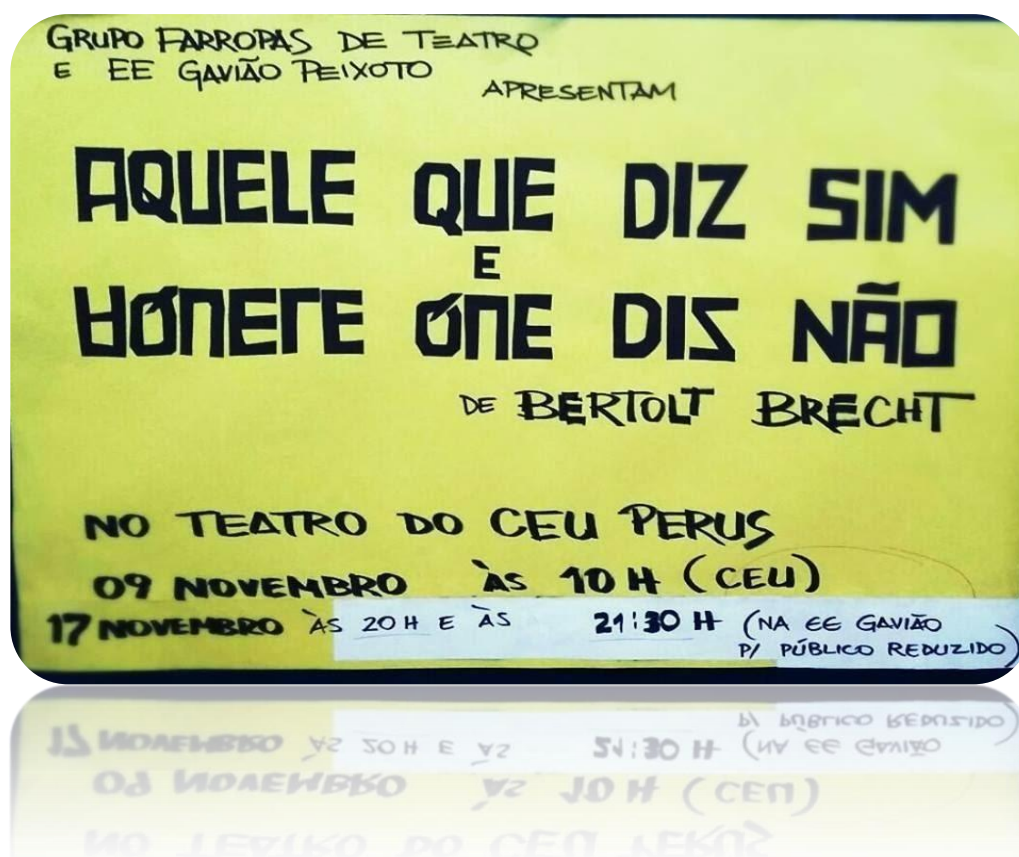 GRUPO FARROPAS DE TEATRO
E EE GAVIÃO PEIXOTO
APRESENTAM
AQUELE QUE DIZ SIM
E
AQUELE QUE DIZ NÃO
DE BERTOLT BRECHT
NO TEATRO DO CEU PERUS
09 NOVEMBRO ÀS 10 H (CEU)
17 NOVEMBRO ÀS 20 H E ÀS 21:30 H (NA EE GAVIÃO
P/ PÚBLICO REDUZIDO)